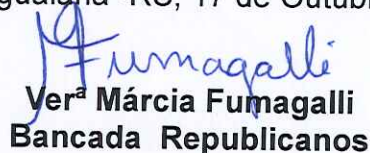 guaiana- RS, 17 de Outub
Fumagalli
Verª Márcia Fumagalli
Bancada Republicanos